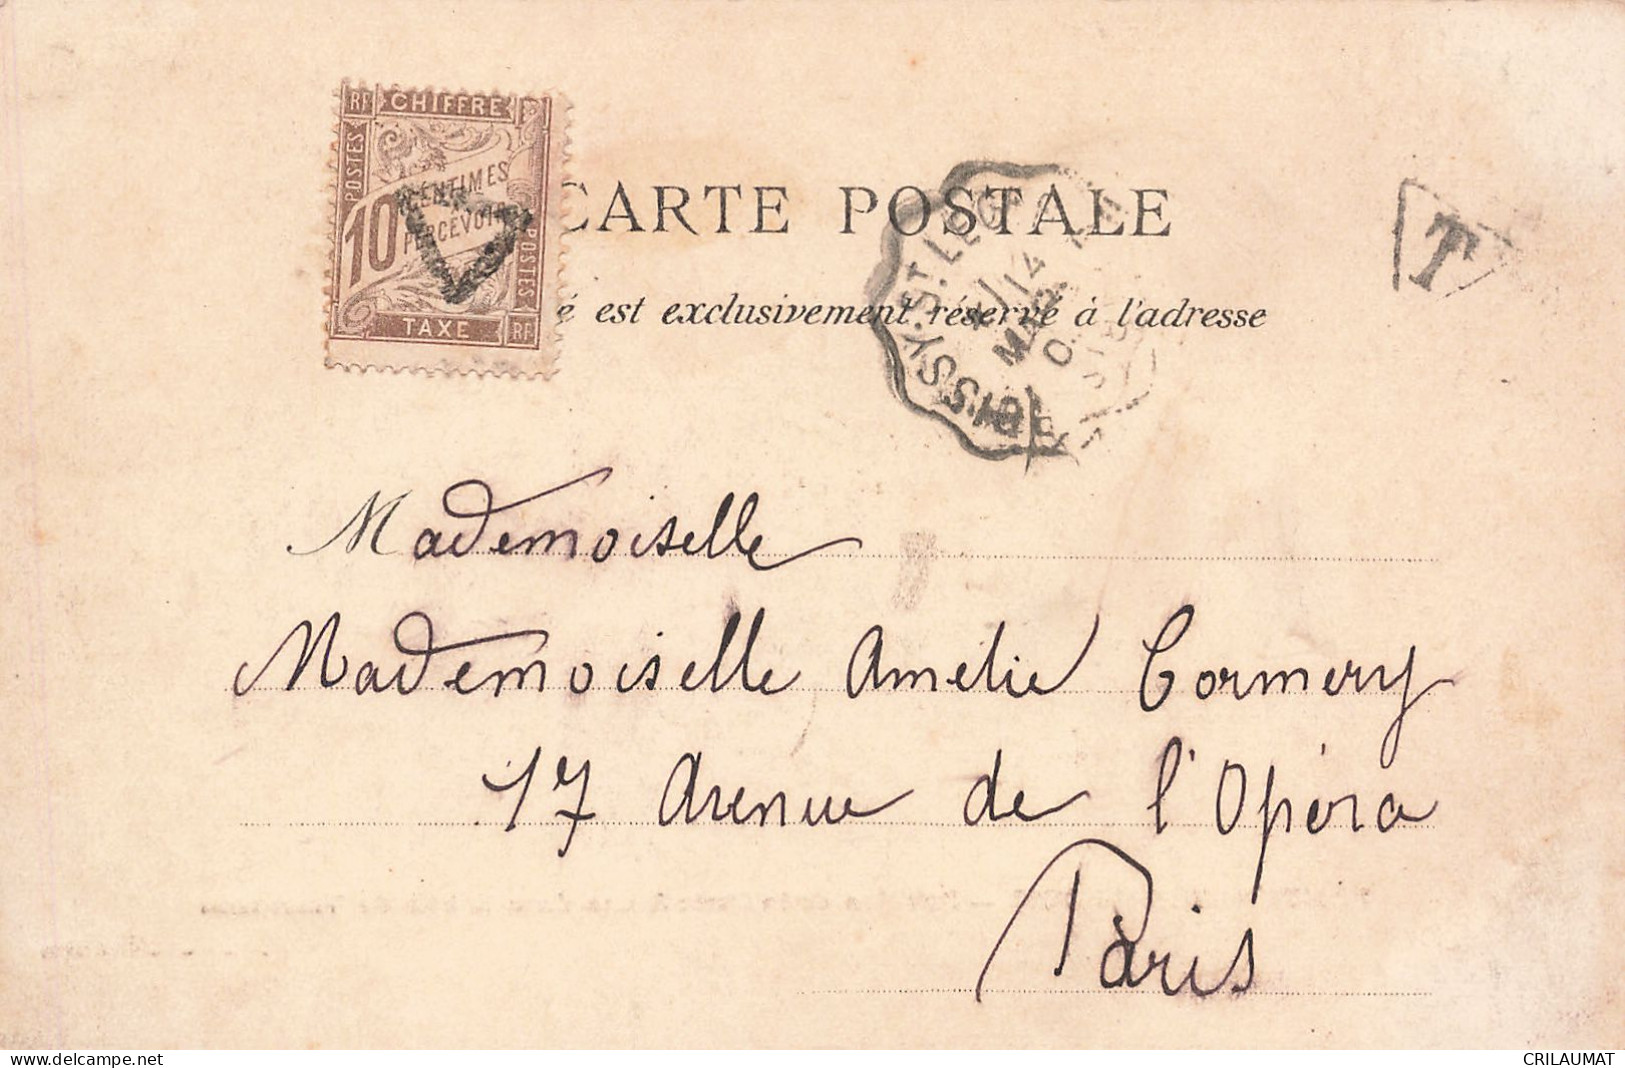 RF CHIFFRE
POSTES
10 CENTIMES
PERCEVOIR
POSTES
TAXE RF
CARTE POSTALE
é est exclusivement réservé à l'adresse
T
14
MARS
Mademoiselle
Mademoiselle Amélie Cormery
17 Avenue de l'Opéra
Paris
www.delcampe.net
CRILAUMAT